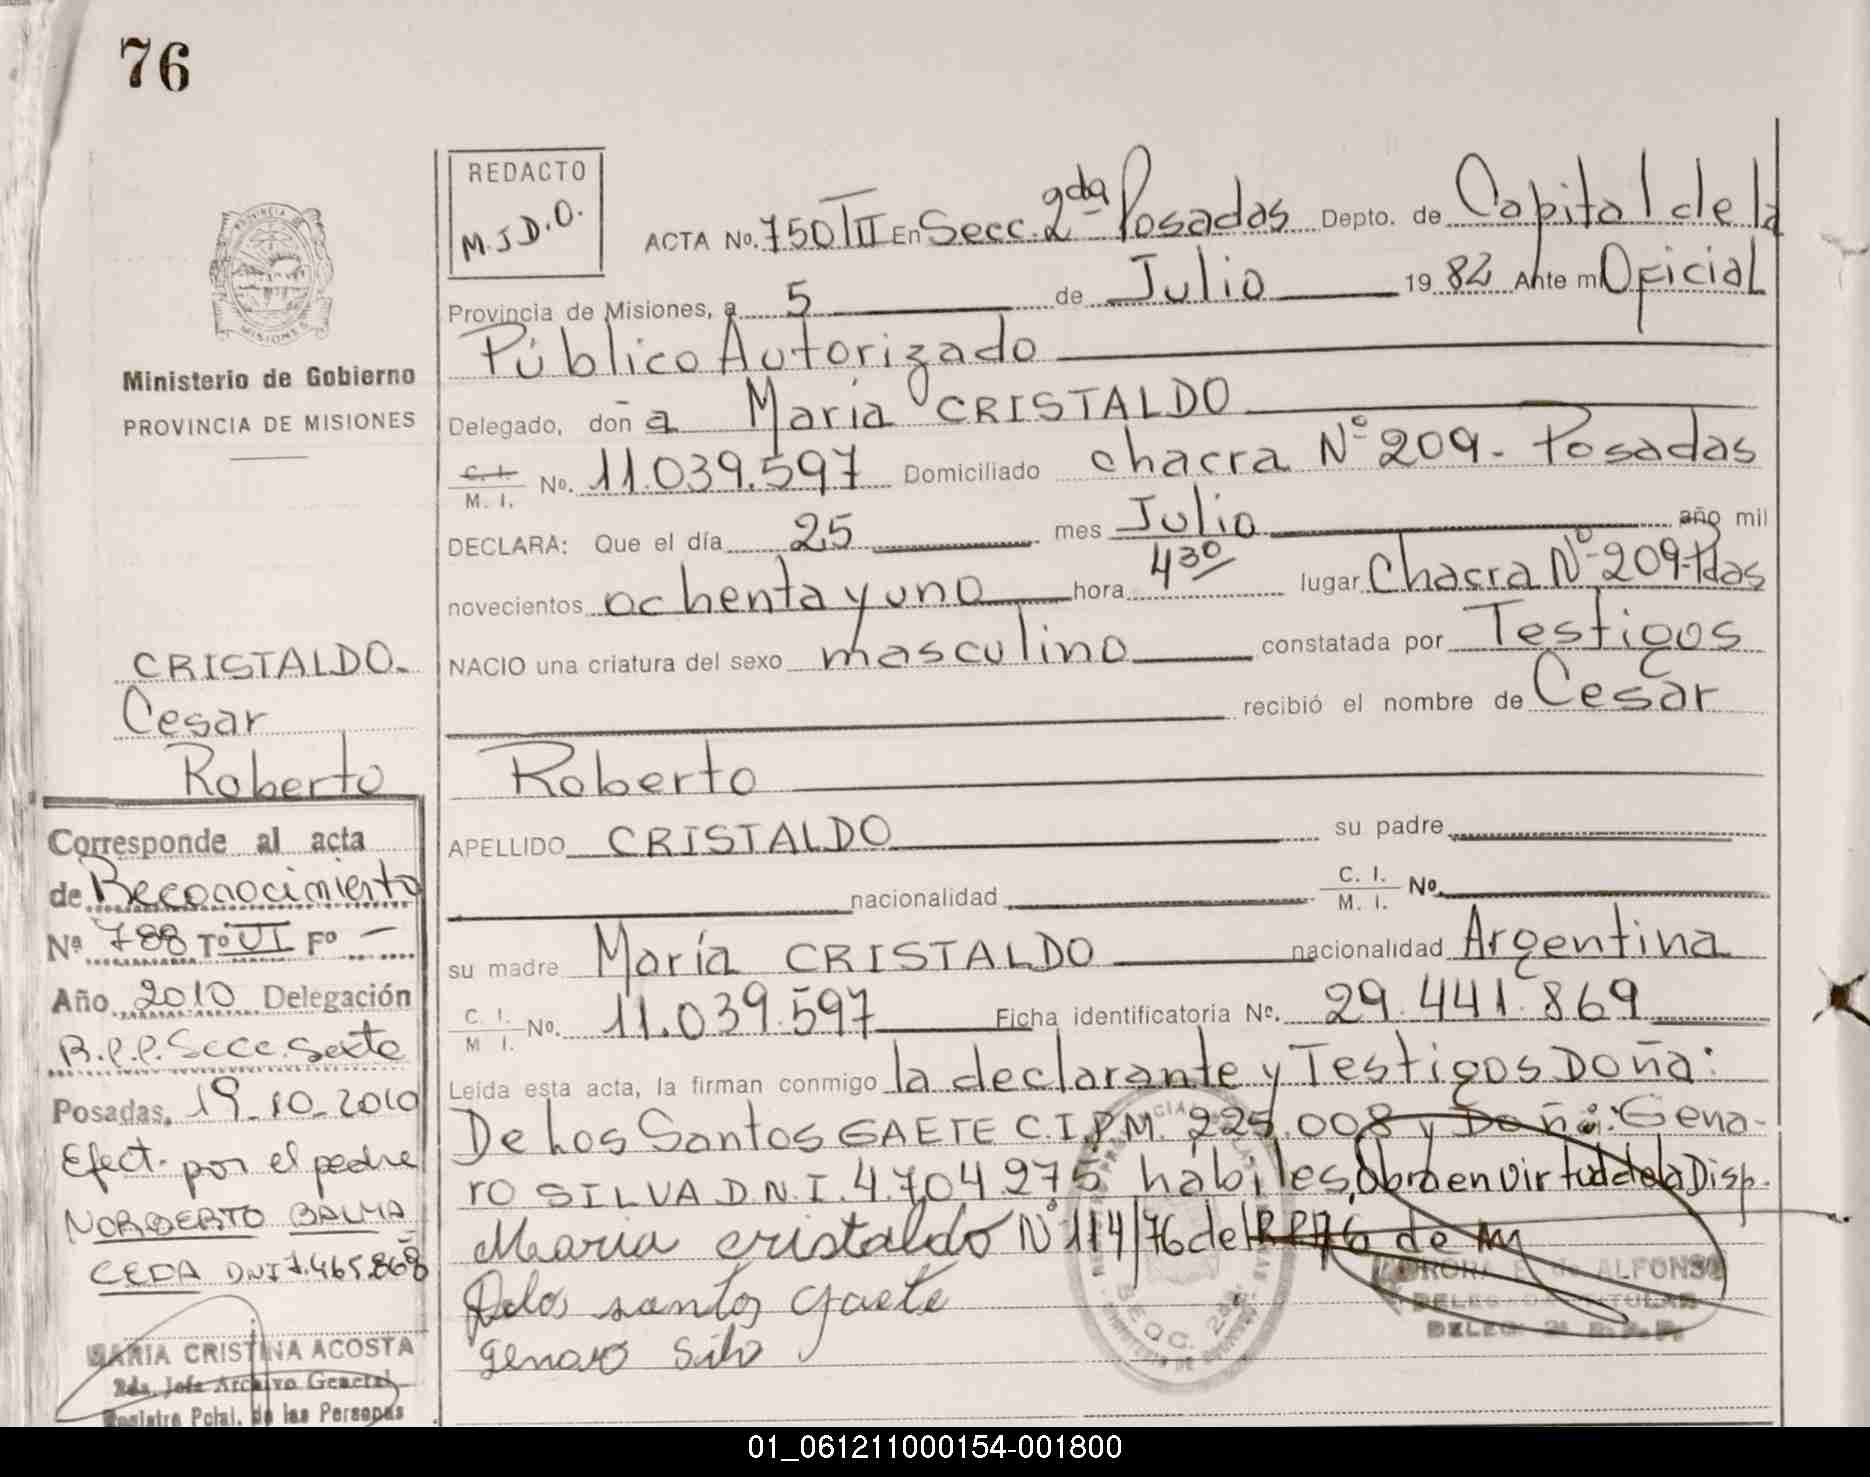 76
REDACTO
M.J.D.O.
ACTA No. 750 TII En Secc. 2da Posadas Depto. de Capital de la
Provincia de Misiones, a 5 de Julio 19 82 Ante mi Oficial
Público Autorizado
Delegado, doña María CRISTALDO
C. I. M. I. No. 11.039.597 Domiciliado chacra Nº 209- Posadas
DECLARA: Que el día 25 mes Julio año mil
novecientos ochenta y uno hora 4 30 lugar Chacra Nº 209-Pdas
NACIO una criatura del sexo masculino constatada por Testigos
recibió el nombre de Cesar
Roberto
APELLIDO CRISTALDO su padre
nacionalidad C. I. M. I. No.
su madre María CRISTALDO nacionalidad Argentina
C. I. M. I. No. 11.039.597 Ficha identificatoria No. 29.441.869
Leída esta acta, la firman conmigo la declarante y Testigos Doña:
De Los Santos GAETE C.I.P.M. 225.008 y Doña: Gena-
ro SILVA D.N.I. 4.704.275 hábiles, Obra en virtud de la Disp.
Maria cristaldo Nº 114/76 del
Delos santos gaete
genaro
PROVINCIA MISIONES
Ministerio de Gobierno
PROVINCIA DE MISIONES
CRISTALDO.
Cesar
Roberto
Corresponde al acta
de Reconocimiento
Nº 788 Tº VI Fº -
Año 2010 Delegación
R.P.P. Secc. Sexta
Posadas, 19-10-2010
Efect. por el padre
NORBERTO BALMA
CEDA DNI 7.465.868
MARIA CRISTINA ACOSTA
2da. Jefe Archivo General
Registro Pcial. de las Personas
SECC. 2da.
de ALFONSO
DELEGADA TITULAR
DELEG. 2ª R.P.P.
01_061211000154-001800